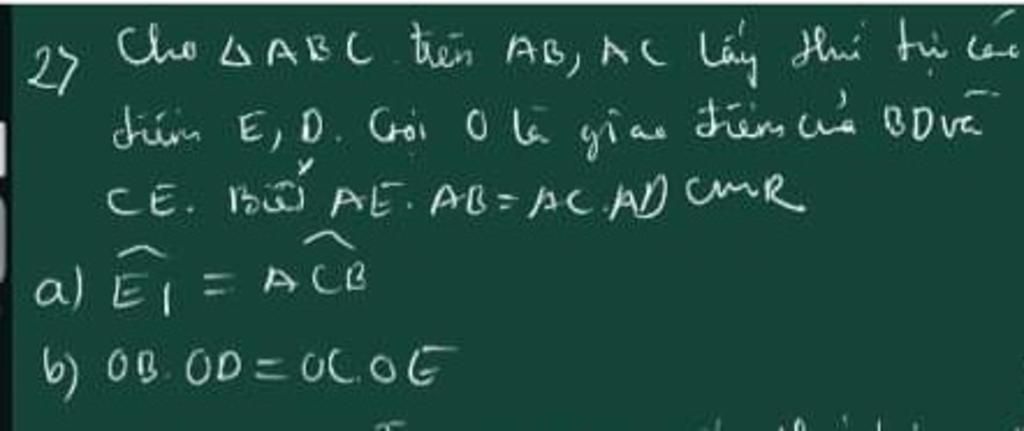 2) Cho △ABC trên AB, AC lấy thứ tự các
điểm E, D. Gọi O là giao điểm của BD và
CE. Biết AE.AB=AC.AD CMR
a) Ê₁ = AĈB
b) OB.OD=OC.OE